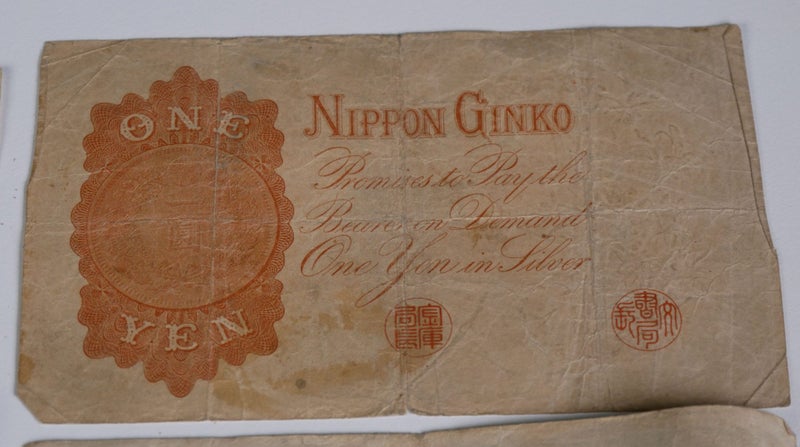 ONE
YEN
NIPPON GINKO
Promises to Pay the
Bearer on Demand
One Yen in Silver
金庫
局長
文書局長